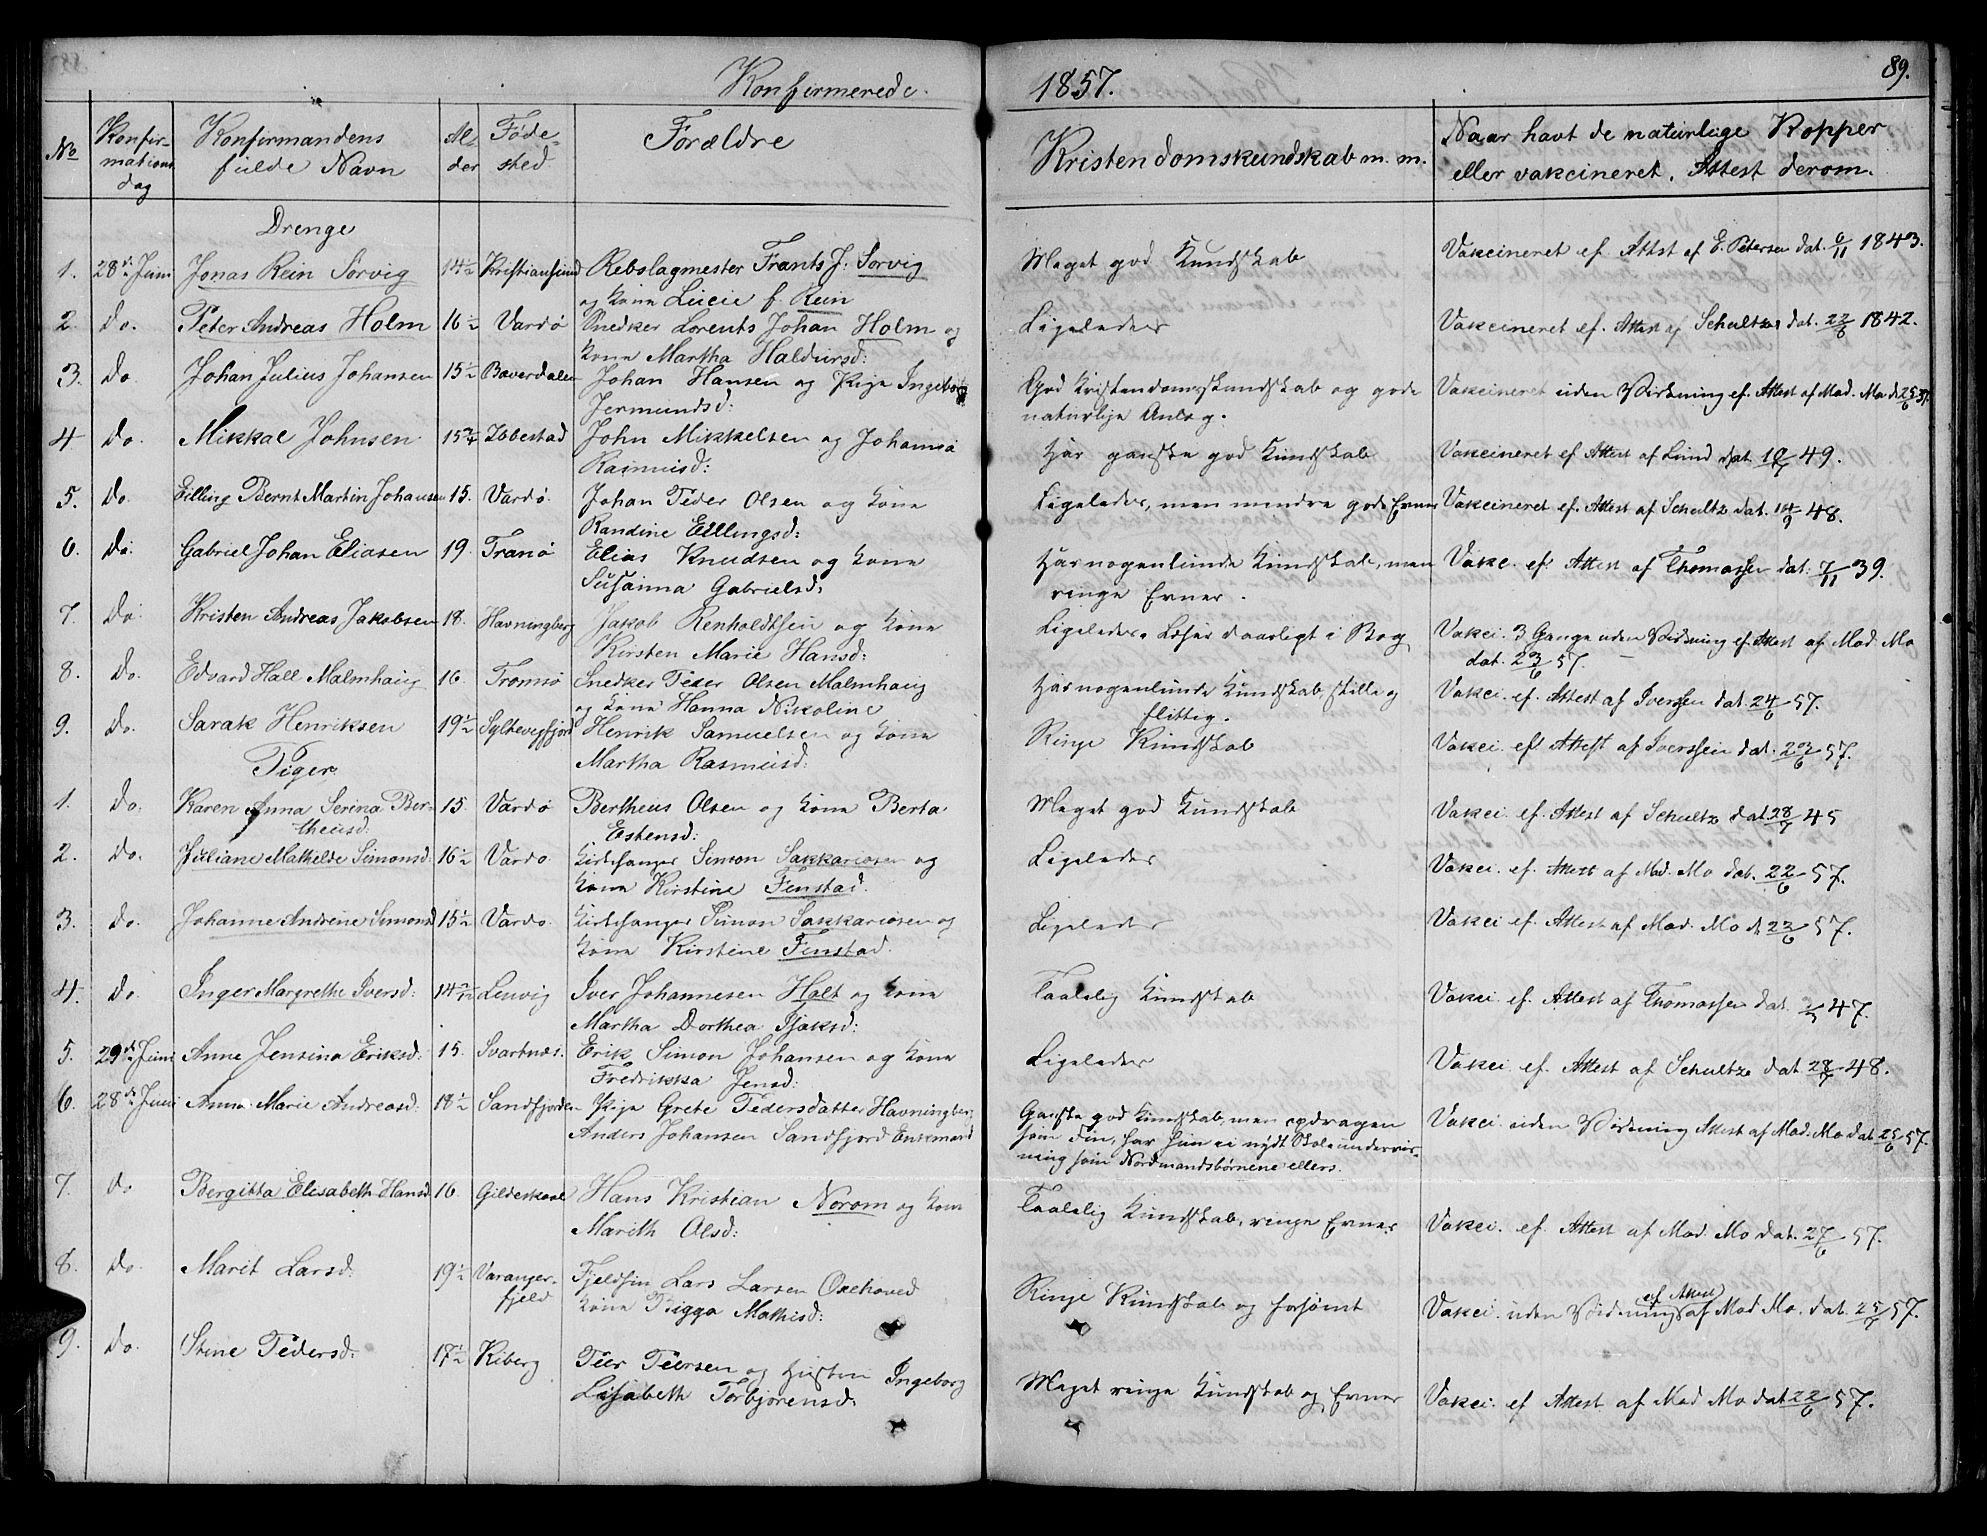 Konfirmerede 1857. 89.
No Konfirmations dag Konfirmandens fulde Navn Alder Fødested Forældre Kristendomskundskab m. m. Naar havt de naturlige Kopper eller vakcineret. Attest derom.
Drenge
1. 28de Juni Jonas Rein Sørvig 14½ Kristiansund Rebslagmester Frants J. Sørvig og Kone Lucie f. Rein Meget god Kundskab Vakcineret ef. Attst af E. Petersen dat. 6/11 1843.
2. Do. Peter Andreas Holm 16½ Vardø Snedker Lorents Johan Holm og Kone Martha Haldursd: Ligeledes Vakcineret ef. Attest af Schultze dat. 22/6 1842.
3. Do Johan Julius Johansen 15½ Baverdalen Johan Hansen og Pige Ingeborg Jermundsd: God Kristendomskundskab og gode naturlige Anlæg. Vakcineret uden Virkning ef. Attest af Mad. Mo d. 25/6 57.
4 Do. Mikkal Johnsen 15¾ Ibbestad John Mikkelsen og Johanna Rasmusd: Har ganske god Kundskab Vakcineret ef Attest af Lund dat. 49.
5. Do. Eilling Bernt Martin Johansen 15. Vardø. Johan Peder Olsen og Kone Randine Ellingsd: Ligeledes, men mindre gode Evner Vakcineret ef. Attest af Schultz dat. 14/9 48.
6. Do. Gabriel Johan Eliasen 19. Tranø Elias Knudsen og Kone Susanna Gabrielsd. Har nogenlunde Kundskab, men ringe Evner. Vakc. ef. Attest af Thomassen dat. 7/11 39.
7. Do. Kristen Andreas Jakobsen 18. Havningberg Jakob Renholdtsen og Kone Kirsten Marie Hansd: Ligeledes. Læser daarligt i Bog Vakci. 3 Gange uden Virkning ef. Attest af Mad. Mo dat. 23/6 57.
8. Do. Edvard Hall Malmhaug 16. Tromsø Snedker Peder Olsen Malmhaug og Kone Hanna Nikoline Har nogenlunde Kundskab, stille og flittig. Vakci. ef. Attest af Iverssen dat. 24/6 57.
9. Do. Sarak Henriksen 19½ Syltevigfjord Henrik Samuelsen og Kone Martha Rasmusd: Ringe Kundskab Vakci. ef. Attest af Iverssen dat. 23/6 57.
Piger
1. Do. Karen Anna Serina Bertheusd: 15. Vardø Bertheus Olsen og Kone Berta Estensd: Meget god Kundskab Vakci. ef. Attest af Schultz dat. 28/7 45
2. Do. Juliane Mathilde Simonsd. 16½ Vardø Kirkesanger Simon Sakkariasen og Kone Kirstine Finstad. Ligeledes Vakci. ef. Attest af Mad. Mo dat. 22/6 57.
3. Do. Johanne Andrine Simonsd 15½ Vardø. Kirkesanger Simon Sakkariasen og Kone Kirstine Finstad. Ligeledes Vakci ef. Attest af Mad. Mo d. 22/6 57.
4. Do. Inger Margrethe Iversd: 14 Lenvig Iver Johannesen Holt og Kone Martha Dorthea Isaksd: Taalelig Kundskab Vakci. ef. Attest af Thomassen dat. 47.
5. 29de Juni Anne Jensina Eriksd: 15. Svartnæs. Erik Simon Johansen og Kone Fredrikka Jensd: Ligeledes Vakci ef. Attest af Schultze dat 48.
6. 28de Juni Anne Marie Andreasd: 18½ Sandfjorden Pige Grete Pedersdatter Havningberg, Anders Johansen Sandfjord Enkemand Ganske god Kundskab, men opdragen som Fin, har hun ei nydt Skoleundervisning som Nordmandsbørnene ellers. Vakci. uden Virkning Attest af Mad. Mo dat. 25/6 57.
7. Do Bergitta Elisabeth Hansd. 16. Gildeskaal Hans Kristian Norom og Kone Marith Olsd: Taalelig Kundskab, ringe Evner Vakci. ef. Attest af Mad. Mo dat. 27/6 57.
8. Do. Marit Larsd: 19½ Varangerfjeld Fjeldfin Lars Larsen Oxehoved Kone Bigga Mathisd: Ringe Kundskab og forsømt Vakci. uden Virkning ef. Attest af Mad Mo. dat. 25/6 57.
9. Do. Stine Pedersd: 17½ Kiberg Peer Peersen og Hustru Ingeborg Lisabeth Torbjørensd. Meget ringe Kundskab og Evner Vakci. ef Attest af Mad Mo dat 22/6 57.